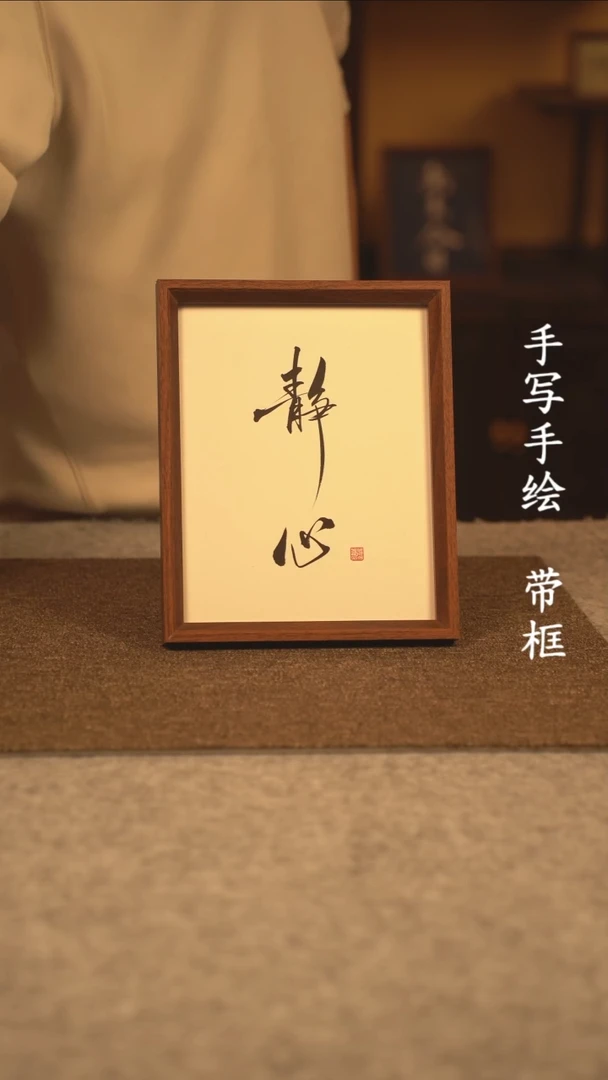 静心
手写手绘 带框